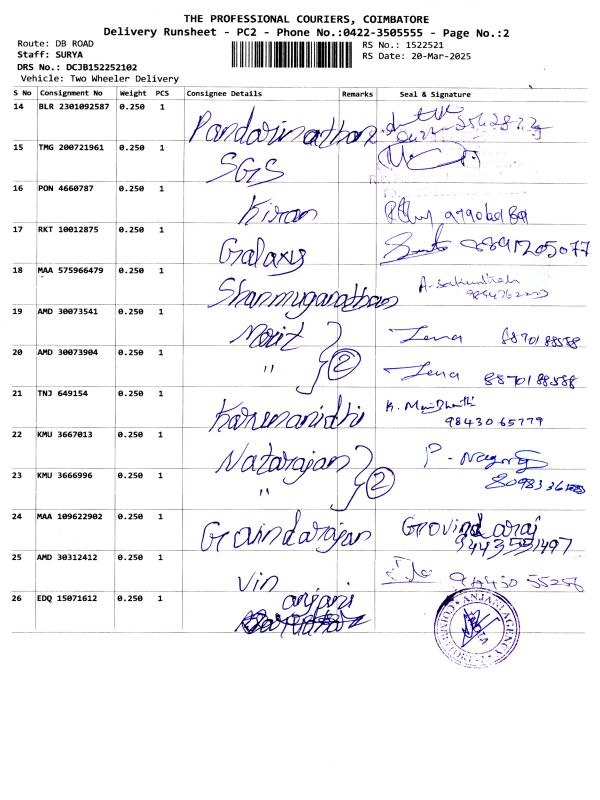 THE PROFESSIONAL COURIERS, COIMBATORE
Delivery Runsheet - PC2 - Phone No.:0422-3505555 - Page No.:2
Route: DB ROAD RS No.: 1522521
Staff: SURYA RS Date: 20-Mar-2025
DRS No.: DCJB152252102
Vehicle: Two Wheeler Delivery
S No Consignment No Weight PCS Consignee Details Remarks Seal & Signature
14 BLR 2301092587 0.250 1 Pandarinathan
15 TMG 200721961 0.250 1 SGS
16 PON 4660787 0.250 1 Kiran
17 RKT 10012875 0.250 1 Galaxy
18 MAA 575966479 0.250 1 Shanmuganathan A. Sakunthala
19 AMD 30073541 0.250 1 Lena 88701 88588
20 AMD 30073904 0.250 1 " 2 Lena 88701 88588
21 TNJ 649154 0.250 1 Karunanidhi K. 98430 65779
22 KMU 3667013 0.250 1 Natarajan P.
23 KMU 3666996 0.250 1 " 2
24 MAA 109622902 0.250 1 Govindarajan Govindaraj
25 AMD 30312412 0.250 1 Vin
26 EDQ 15071612 0.250 1 anjani ANJANI AGENCY COIMBATORE